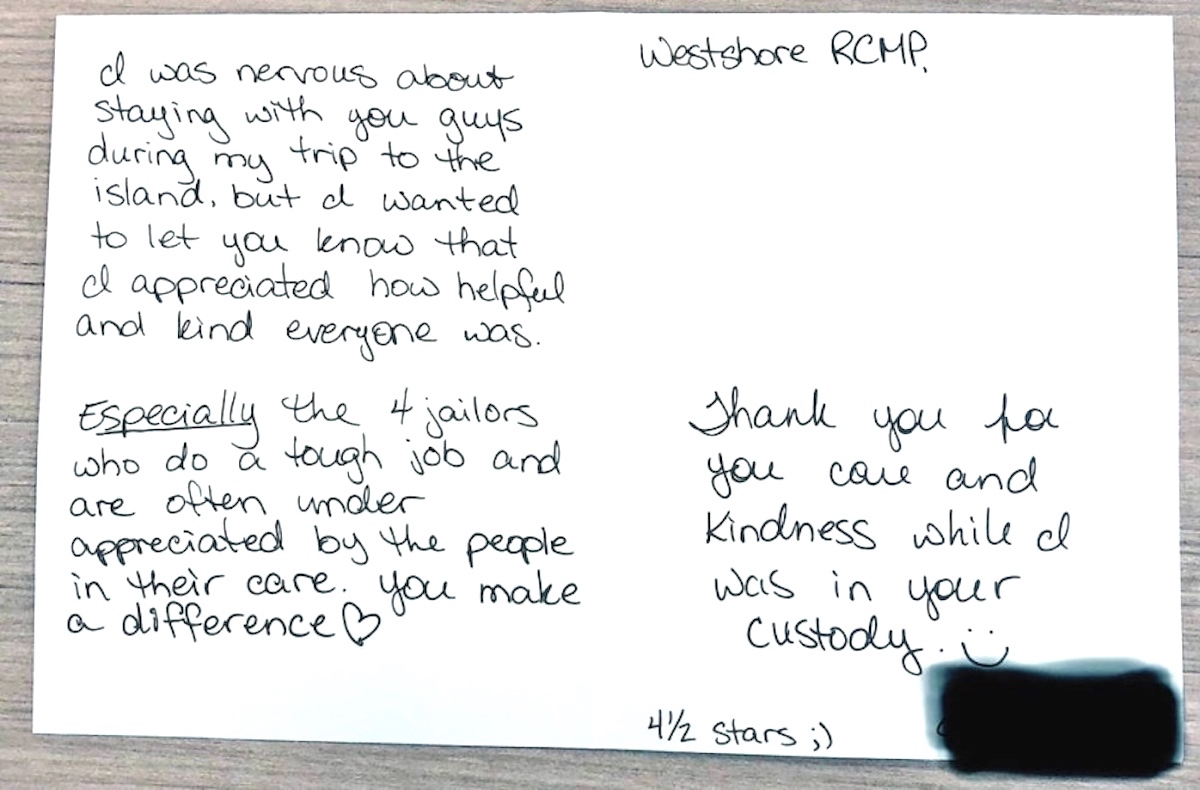 I was nervous about
staying with you guys
during my trip to the
island, but I wanted
to let you know that
I appreciated how helpful
and kind everyone was.
Especially the 4 jailors
who do a tough job and
are often under
appreciated by the people
in their care. You make
a difference ♡
Westshore RCMP.
Thank you for
you care and
Kindness while I
was in your
custody. :)
4½ stars ;)